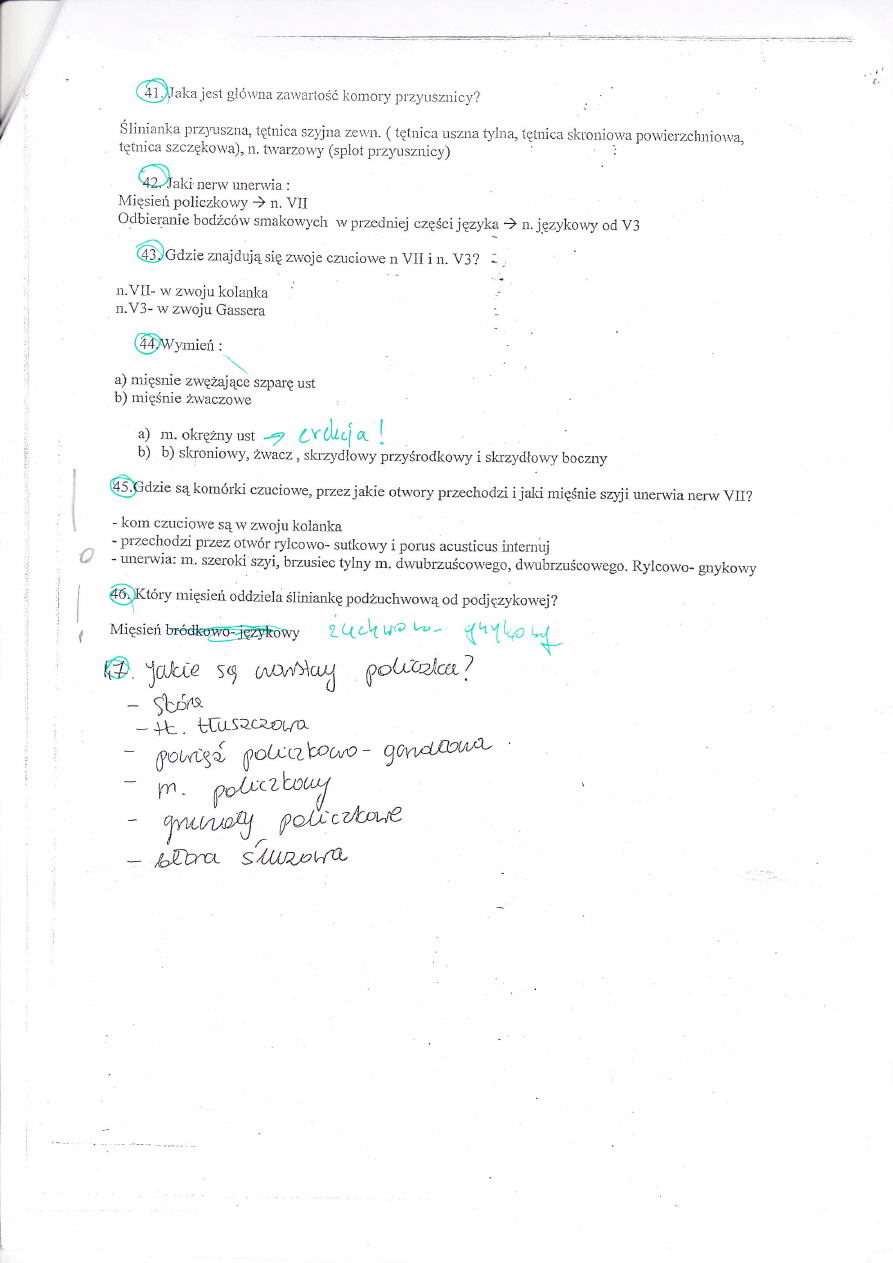 41. Jaka jest główna zawartość komory przyusznicy?
Ślinianka przyuszna, tętnica szyjna zewn. ( tętnica uszna tylna, tętnica skroniowa powierzchniowa,
tętnica szczękowa), n. twarzowy (splot przyusznicy)
42. Jaki nerw unerwia :
Mięsień policzkowy → n. VII
Odbieranie bodźców smakowych w przedniej części języka → n. językowy od V3
43. Gdzie znajdują się zwoje czuciowe n VII i n. V3?
n.VII- w zwoju kolanka
n.V3- w zwoju Gassera
44. Wymień :
a) mięsnie zwężające szparę ust
b) mięśnie żwaczowe
a) m. okrężny ust → !
b) b) skroniowy, żwacz , skrzydłowy przyśrodkowy i skrzydłowy boczny
45. Gdzie są komórki czuciowe, przez jakie otwory przechodzi i jaki mięśnie szyji unerwia nerw VII?
- kom czuciowe są w zwoju kolanka
- przechodzi przez otwór rylcowo- sutkowy i porus acusticus internuj
- unerwia: m. szeroki szyi, brzusiec tylny m. dwubrzuścowego, dwubrzuścowego. Rylcowo- gnykowy
46. Który mięsień oddziela śliniankę podżuchwową od podjęzykowej?
Mięsień bródkowo-językowy żuchwowo- gnykowy
47. Jakie są warstwy policzka?
- skóra
- tk. tłuszczowa
- powięź policzkowo - gardłowa
- m. policzkowy
- gruczoły policzkowe
- błona śluzowa